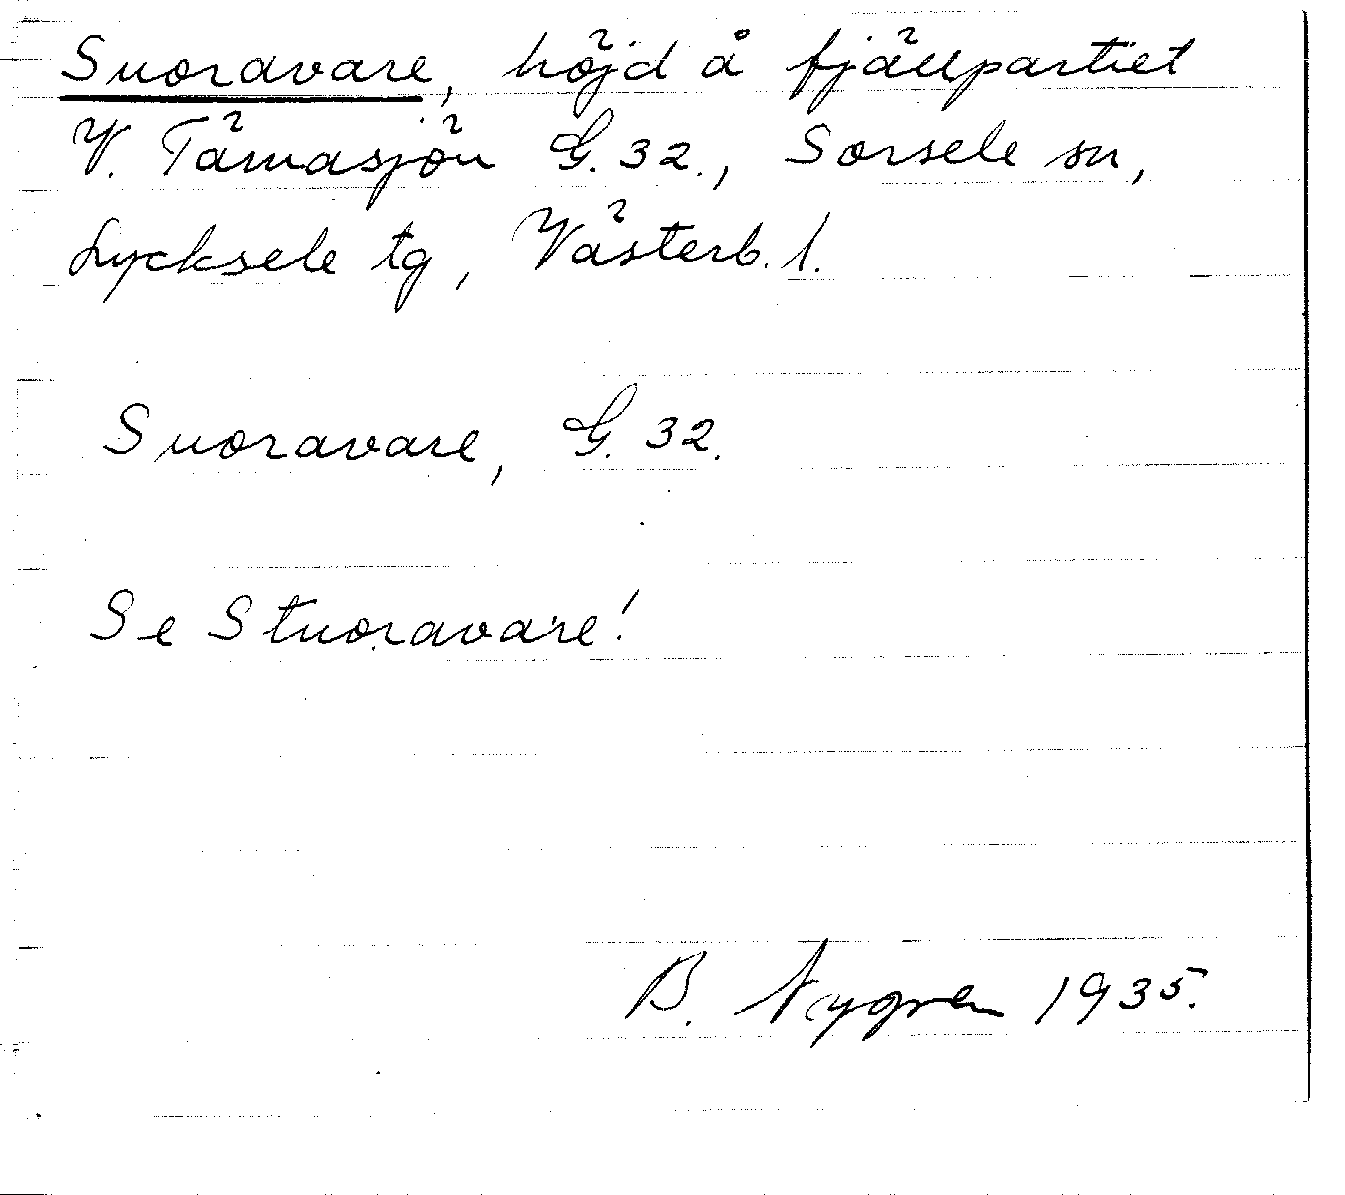 Suoravare, höjd å fjällpartiet
V. Tärnasjön G. 32., Sorsele sn,
Lycksele tg, Västerb. l.
Suoravare, G. 32.
Se Stuoravare!
B. Nygren 1935.